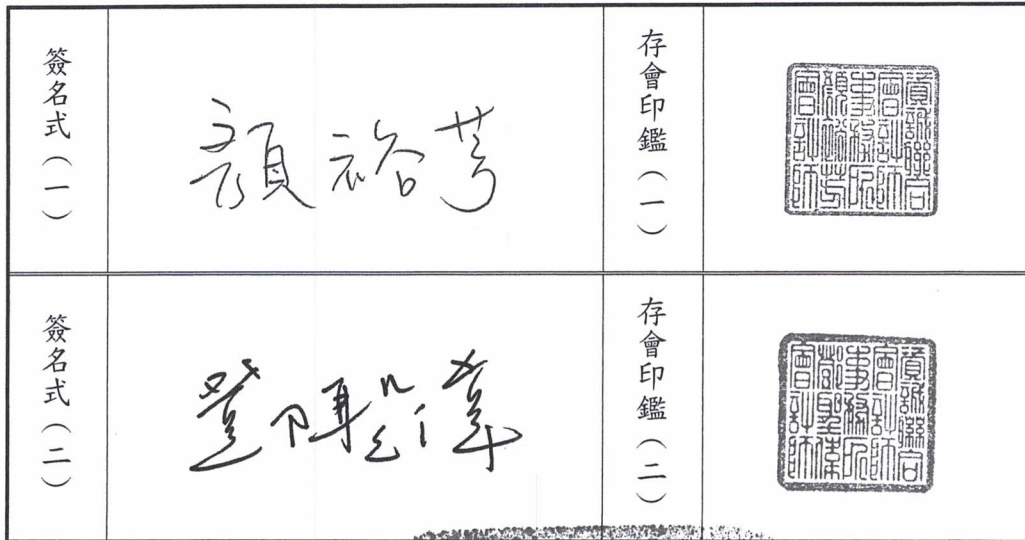 簽名式（一）
顏裕芳
存會印鑑（一）
資誠聯合
會計師
事務所
顏裕芳
會計師
簽名式（二）
鄧聖偉
存會印鑑（二）
資誠聯合
會計師
事務所
鄧聖偉
會計師